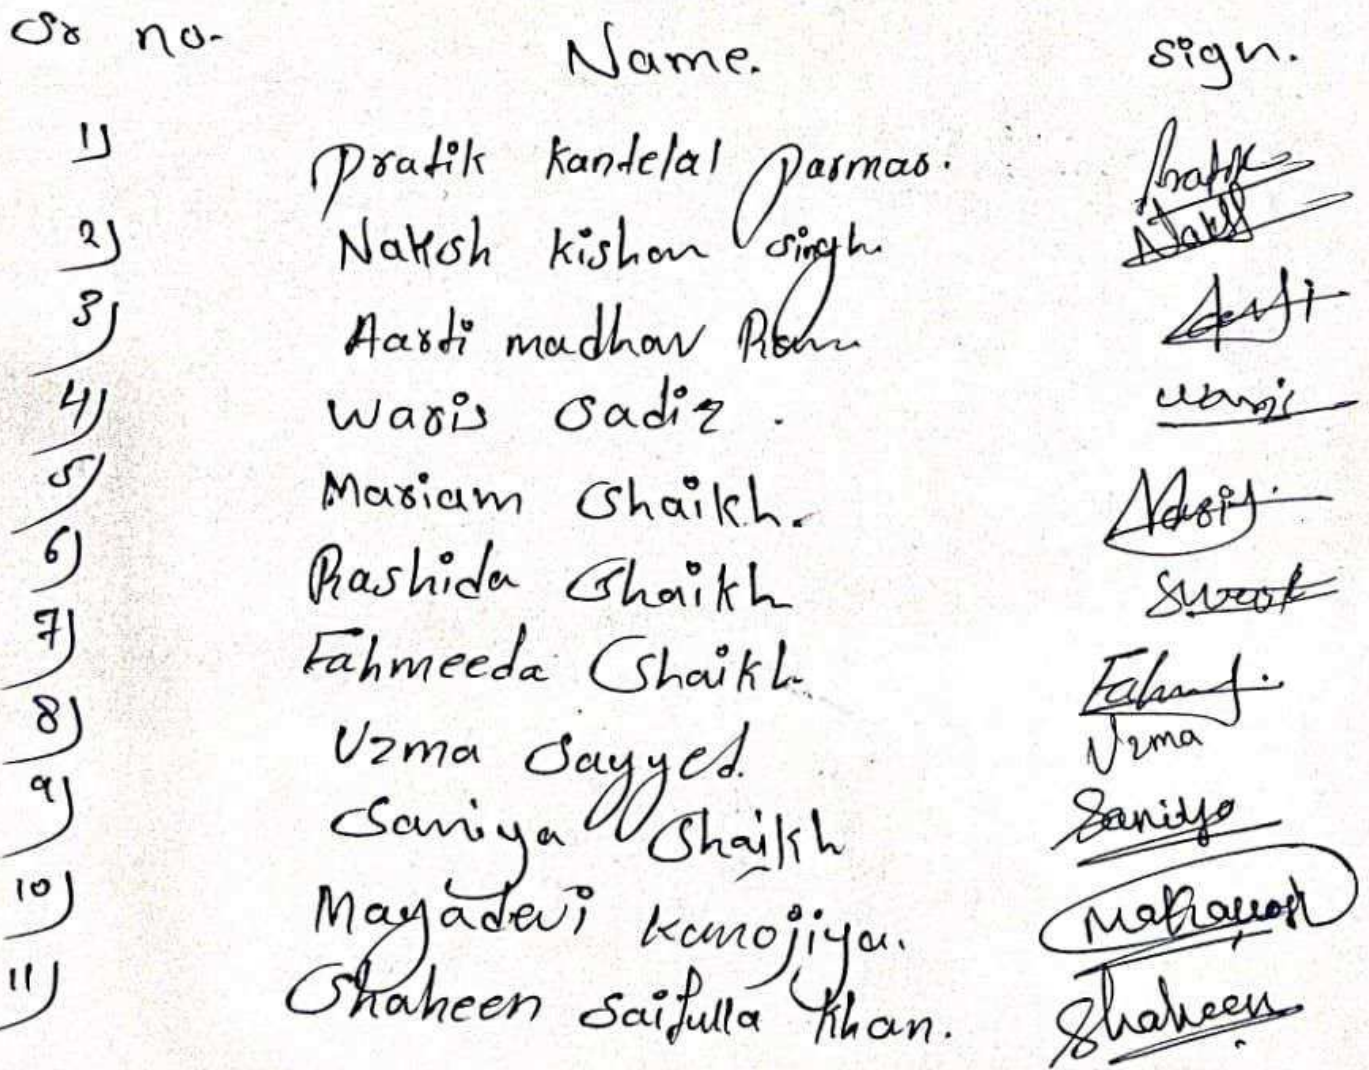 Sr no. Name. sign.
1) Pratik kantelal parmar. Pratik
2) Naksh kishan singh. Naksh
3) Aarti madhav Ram Aarti
4) Waris Sadiz.
5) Mariam Shaikh.
6) Rashida Shaikh
7) Fahmeeda Shaikh
8) Uzma Sayyed. Uzma
9) Saniya Shaikh Saniya
10) Mayadevi kanojiya.
11) Shaheen Saifulla Khan. Shaheen